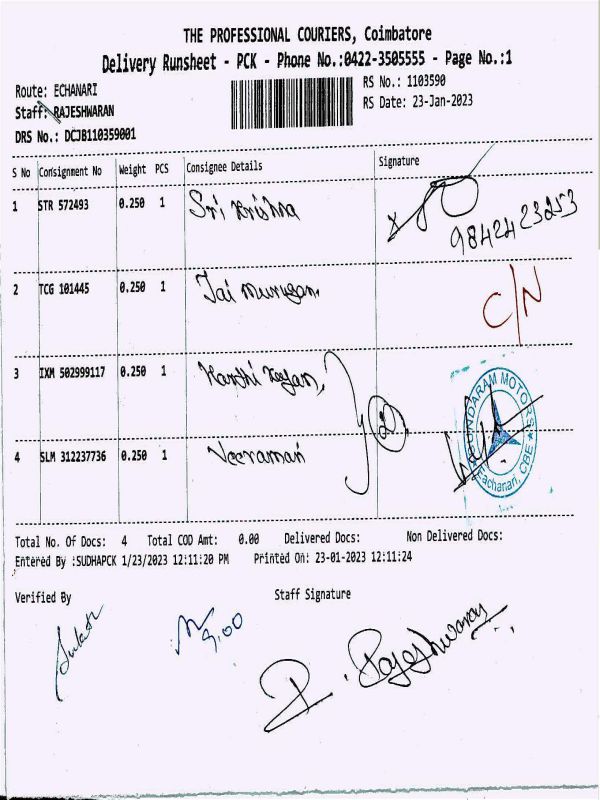 THE PROFESSIONAL COURIERS, Coimbatore
Delivery Runsheet - PCK - Phone No.:0422-3505555 - Page No.:1
Route: ECHANARI
RS No.: 1103590
Staff: RAJESHWARAN
RS Date: 23-Jan-2023
DRS No.: DCJB110359001
S No Consignment No Weight PCS Consignee Details Signature
1 STR 572493 0.250 1 Sri Krishna
9842423253
2 TCG 101445 0.250 1 Jai Murugan C/N
3 IXM 502999117 0.250 1 Karthi Keyan,
2
SUNDARAM MOTORS
Eachanari, CBE
4 SLM 312237736 0.250 1 Veeramani
Total No. Of Docs: 4 Total COD Amt: 0.00 Delivered Docs: Non Delivered Docs:
Entered By :SUDHAPCK 1/23/2023 12:11:20 PM Printed On: 23-01-2023 12:11:24
Verified By Staff Signature
9.00
R. Rajeshwaran